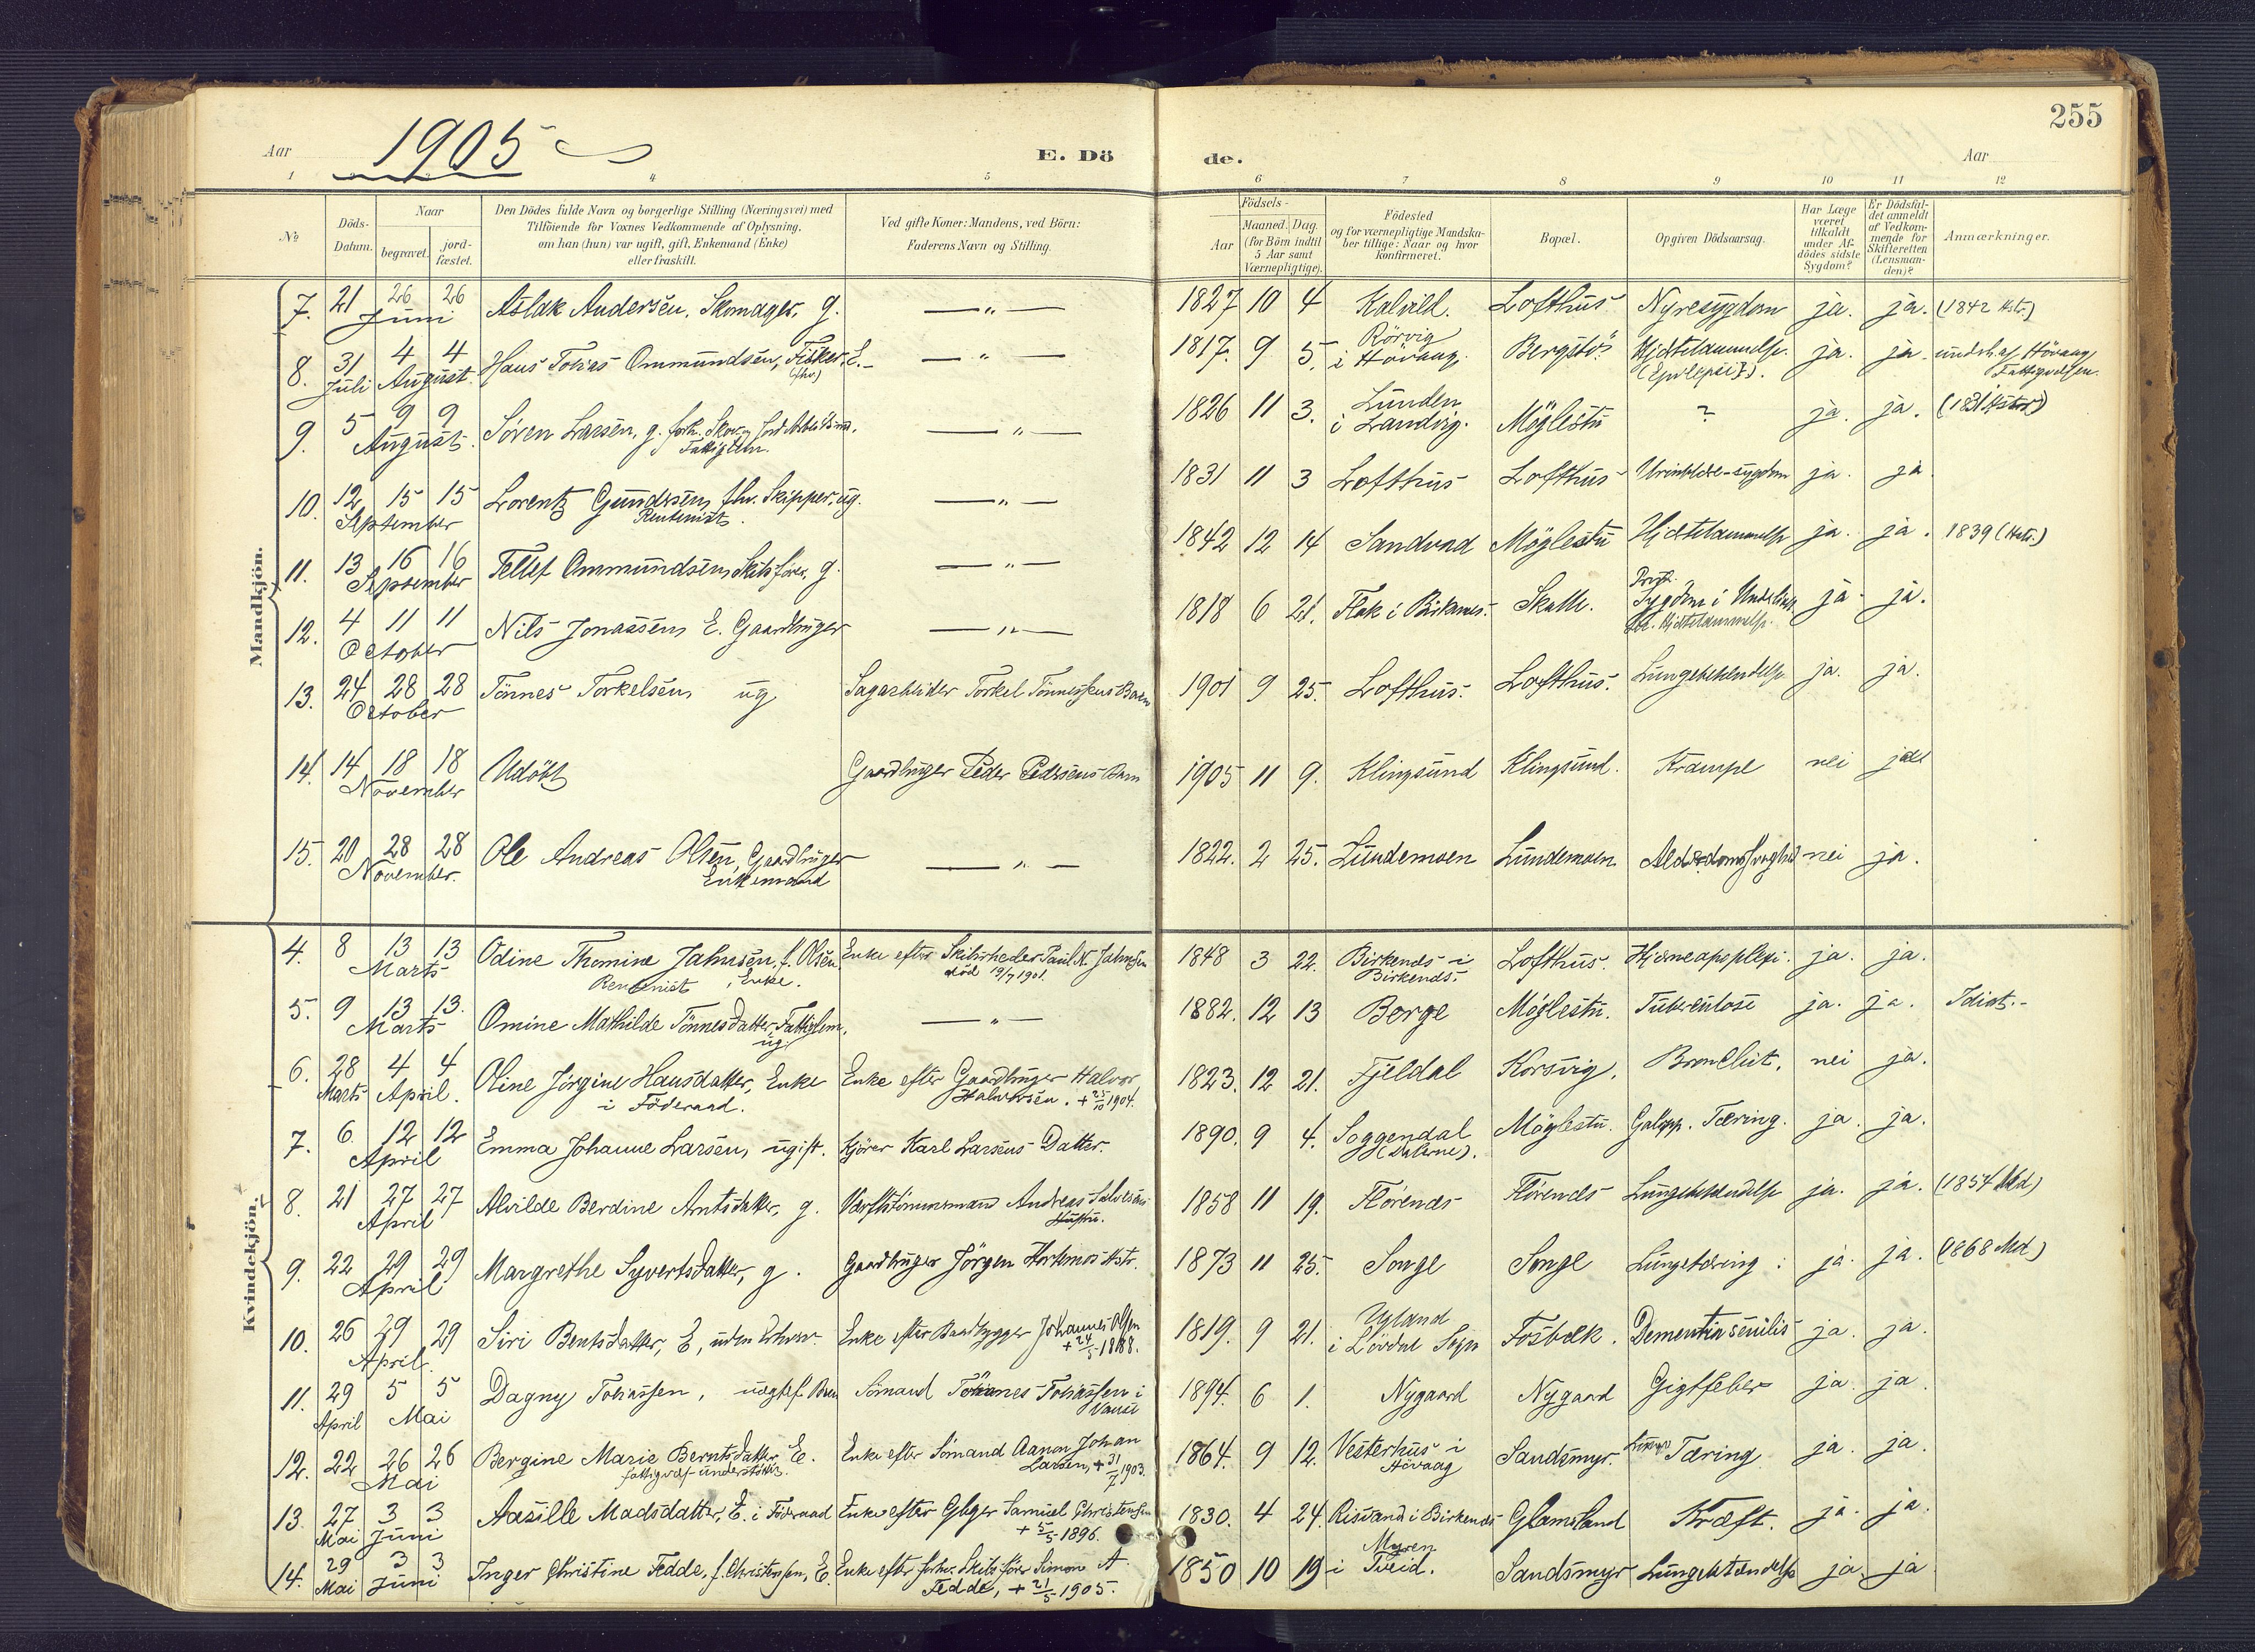 255
Aar 1905
E. Dö
de.
Aar
1 4 5 6 7 8 9 10 11 12
№
Döds-Datum.
Naar
begravet.
jord-fæstet.
Den Dödes fulde Navn og borgerlige Stilling (Næringsvei) med
Tilföiende for Voxnes Vedkommende af Oplysning,
om han (hun) var ugift, gift, Enkemand (Enke)
eller fraskilt.
Ved gifte Koner: Mandens, ved Börn:
Faderens Navn og Stilling.
Födsels-
Aar
Maaned. Dag.
(for Börn indtil
5 Aar samt
Værnepligtige).
Födested
og for værnepligtige Mandska-
ber tillige: Naar og hvor
konfirmeret.
Bopæl.
Opgiven Dödsaarsag.
Har Læge
været
tilkaldt
under Af-
dödes sidste
Sygdom?
Er Dödsfal-
det anmeldt
af Vedkom-
mende for
Skifteretten
(Lensman-
den)?
Anmærkninger.
Mandkjön.
7. 21 26 26 Juni Aslak Andersen, Skomager, g. —"— 1827 10 4 Kalvild. Lofthus Nyresygdom ja. ja. (1842 Kstr.)
8. 31 Juli 4 4 August. Hans Tobias Ommundsen, Fisker, E. (fhv.) —"— 1817. 9 5. Rörvig i Hövaag. Bergstö Hjertelammelse. (Epilepsi?). ja. ja. underst. af Hövaag Fattigvæsen.
9. 5 9 9 August. Søren Larsen, g. Fattiglem. —"— 1826 11 3. Lunden i Landvig. Möglestu ? ja. ja.
10. 12 15 15 September Lorentz Gundersen, fhv. Skipper, ug. Rentenist. —"— 1831 11 3 Lofthus Lofthus Urinblære-sygdom ja. ja.
11. 13 16 16 September Tellef Ommundsen, Skibsfører, g. —"— 1842 12 14 Sandvad Möglestu Hjertelammelse ja. ja. 1839 (Kstr.)
12. 4 11 11 October Nils Jonassen, E. Gaardbruger —"— 1818 6 21. Flak i Birkenes. Skalle. Sygdom i Underlivet Hjertelammelse. ja. ja.
13. 24 28 28 October Tönnes Torkelsen, ug Sagarbeider Torkel Tönnessens Barn 1901 9 25. Lofthus. Lofthus. Lungebetændelse ja. ja.
14. 14 18 18 November Udöbt Gaardbruger Peder Pedersens Barn 1905 11 9. Klingsund Klingsund. Krampe nei ja
15. 20 28 28 November. Ole Andreas Olsen, Gaardbruger Enkemand —"— 1822. 2 25. Lundemoen Lundemoen Alderdomssvaghed nei ja.
Kvindekjön.
4. 8 13 13 Marts Odine Thomine Jahnsen, f. Olsen Rentenist, Enke. Enke efter Skibsreder Paul K. Jahnsen død 19/7 1901. 1848 3 22. Birkenes i Birkenes. Lofthus. Hjerneapoplexi. ja. ja.
5. 9 13 13. Marts Omine Mathilde Tönnesdatter, Fattiglem, ug. —"— 1882. 12 13 Borge Möglestu. Tuberculose ja. ja. Idiot.-
6. 28 Marts 4 4 April. Oline Jörgine Hansdatter, Enke i Föderaad. Enke efter Gaardbruger Halvor Halvorsen. + 25/10 1904. 1823. 12 21. Fjeldal Korsvig. Bronchit. nei ja.
7. 6. 12 12 April Emma Johanne Larsen, ugift. Kjörer Karl Larsens Datter. 1890. 9 4. Soggendal (Dalerne). Möglestu. Galopp. Tæring. ja. ja.
8. 21 27 27 April Alvilde Berdine Arntsdatter, g. Værftstömmermand Andreas Salvesens Hustru. 1858 11 19. Flörenes Flörenes Lungebetændelse ja. ja. (1854 Md)
9. 22 29 29 April Margrethe Syvertsdatter, g. Gaardbruger Jörgen Hortemos Hstr. 1873 11 25. Songe Songe Lungetæring. ja. ja. (1868 Md.)
10. 26 29 29 April. Siri Bentsdatter, E, uden Erhverv. Enke efter Baadbygger Johannes Olsen + 24/5 1888. 1819. 9 21. i Lövdal Sogn Fosbæk. Dementia senilis ja. ja.
11. 29 April 5 5 Mai Dagny Tobiassen, uægtef. Barn Sömand Tobiassen i Vanse 1894. 6 1. Nygaard Nygaard Gigtfeber ja. ja.
12. 22 26 26 Mai Bergine Marie Berntsdatter, E. fattigvæs. understöttet. Enke efter Sömand Aanon Johan Larsen, + 31/7 1903. 1864. 9 12. Vesterhus i Hövaag Sandsmyr. Tæring ja. ja.
13. 27 Mai 3 3 Juni Aasille Madsdatter, E. i Föderaad Enke efter Gbger Samuel Christensen + 5/5 1896. 1830. 4 24. Risvand i Birkenes Glamsland Kræft. ja. ja.
14. 29 Mai 3 3 Juni Inger Christine Fedde, f. Christensen, E. Enke efter forhv. Skibsförer Simon A. Fedde, + 21/5 1905. 1850 10 19 Myren i Tveid. Sandsmyr Lungebetændelse ja. ja